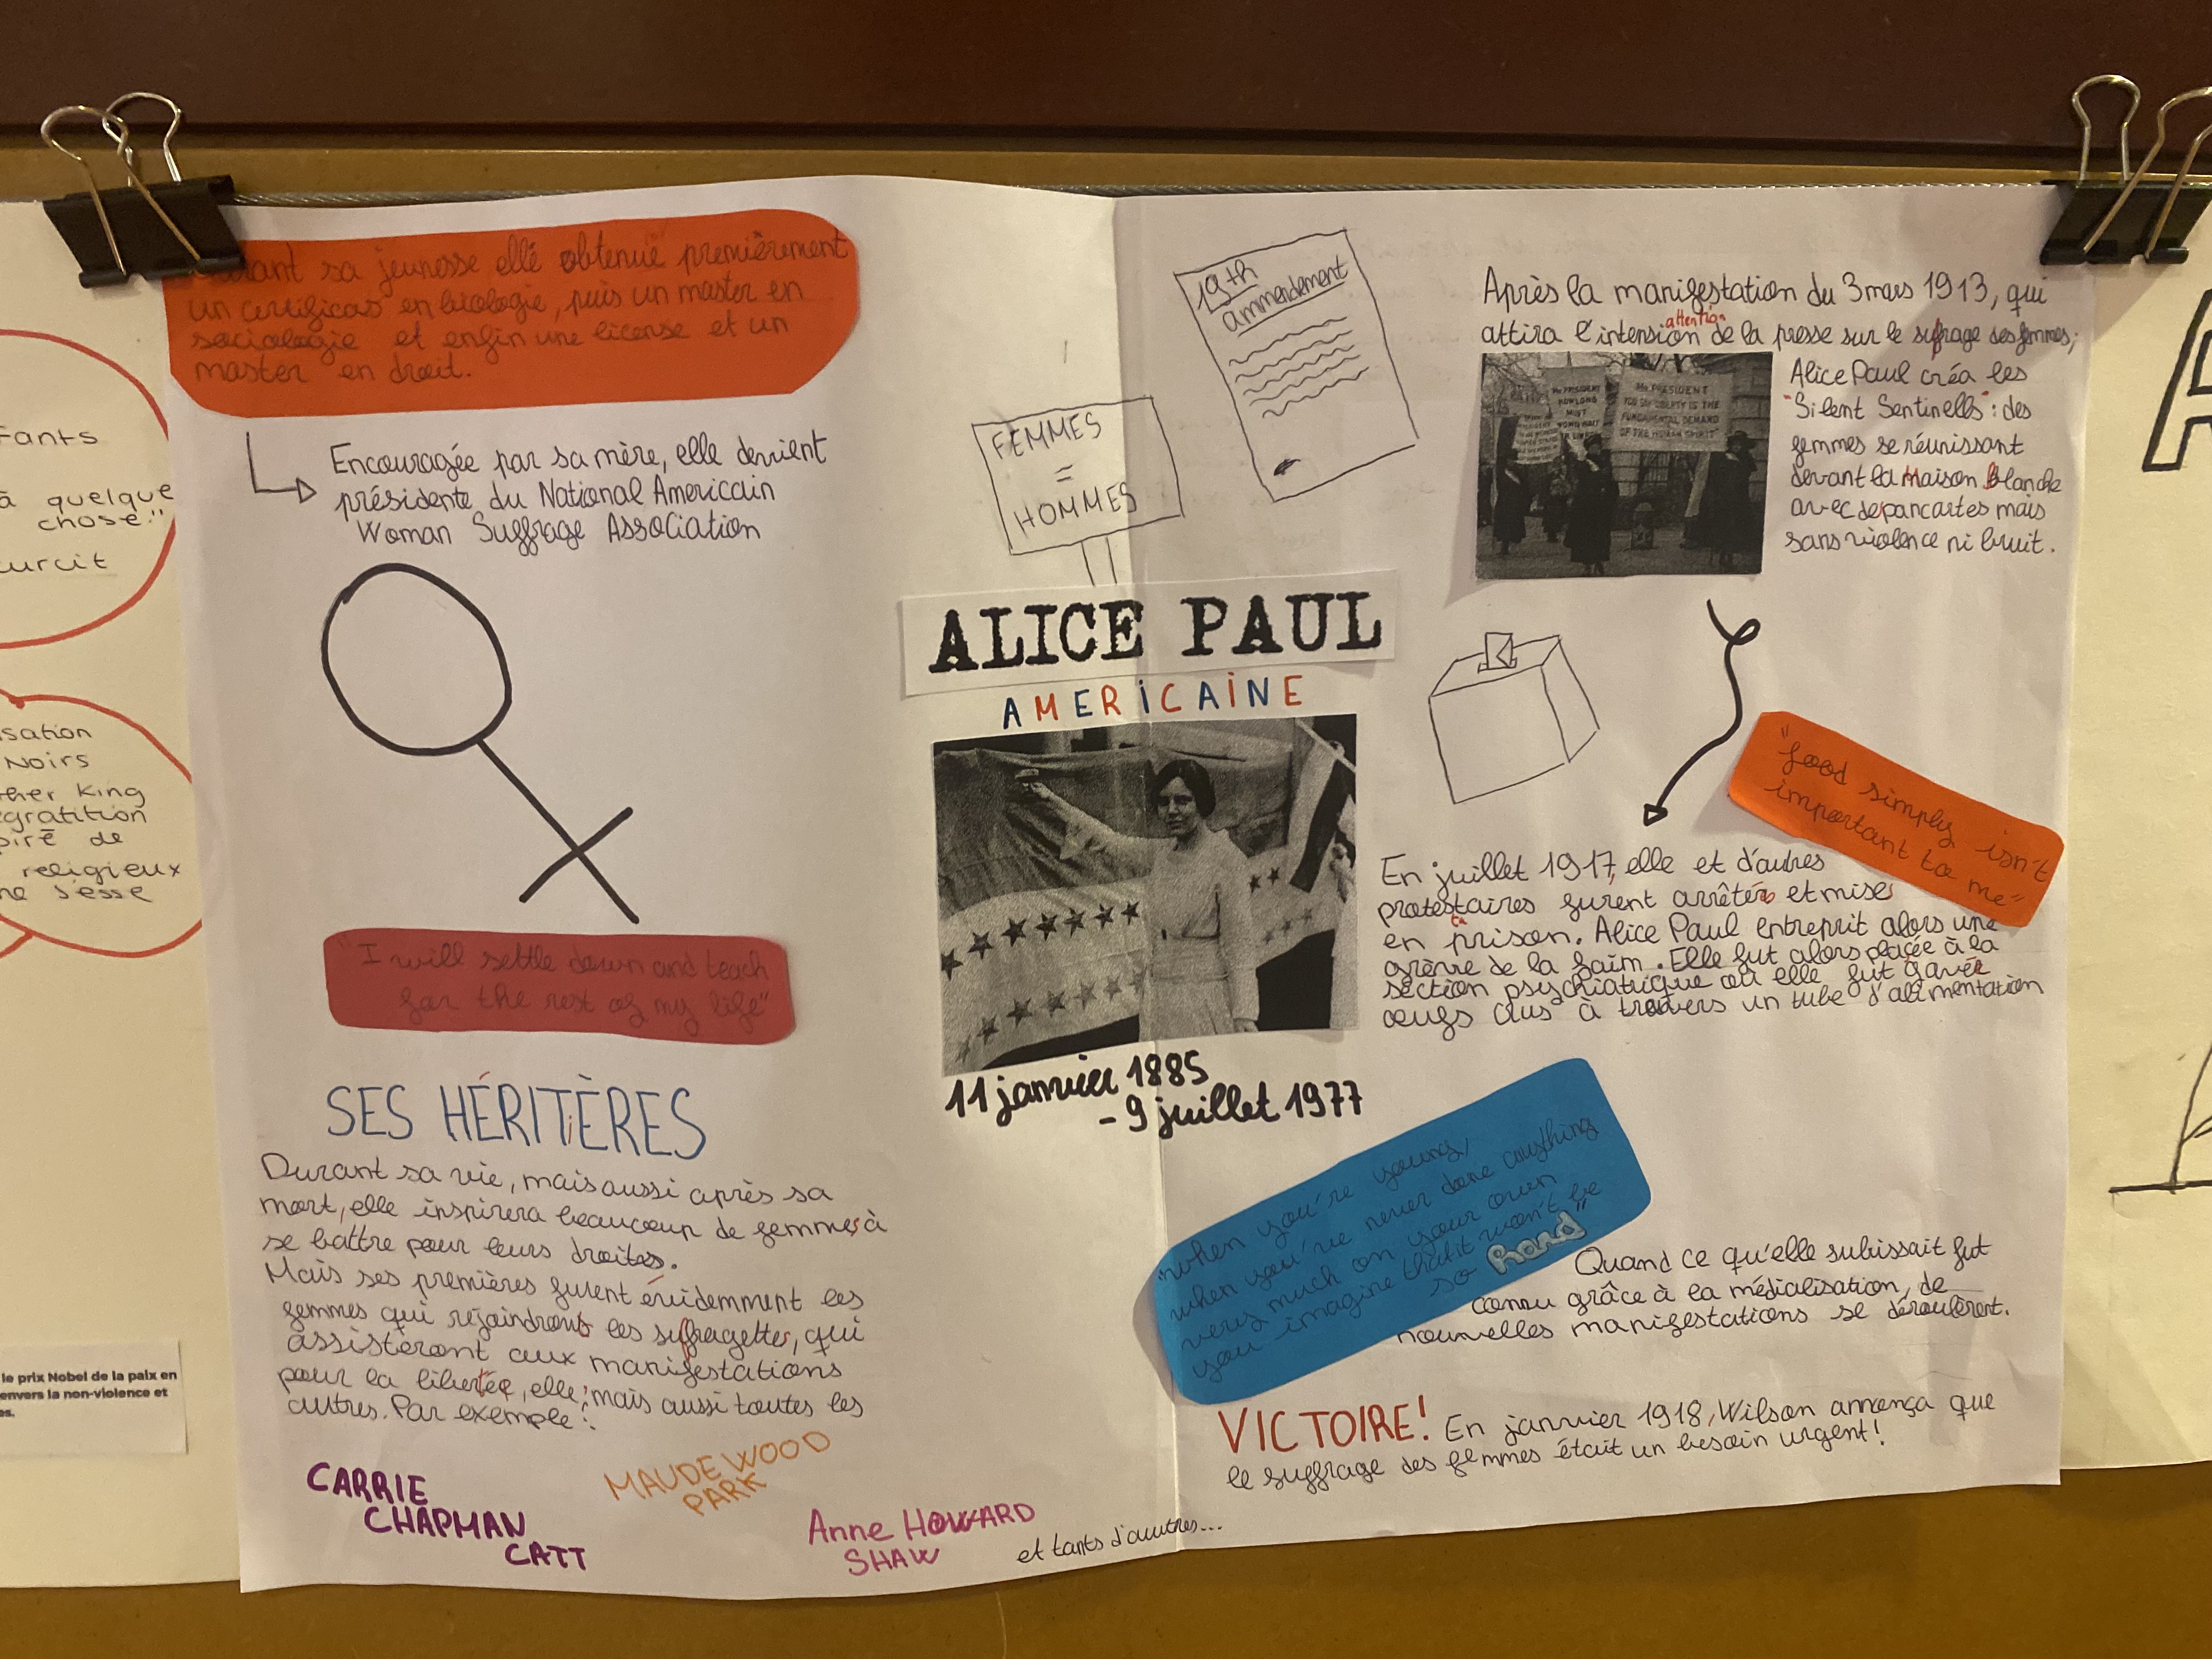 sa jeunesse elle obtenue premièrement
un certificas en biologie, puis un master en
sociologie et enfin une license et un
master en droit.
Encouragée par sa mère, elle devient
présidente du National Americain
Woman Suffrage Association
"I will settle down and teach
for the rest of my life"
SES HÉRITIÈRES
Durant sa vie, mais aussi après sa
mort, elle inspirera beaucoup de femmes à
se battre pour leurs droites.
Mais ses premières furent évidemment les
femmes qui rejoindront les suffragettes, qui
assisteront aux manifestations
pour la liberté, elle, mais aussi toutes les
autres. Par exemple :
CARRIE
CHAPMAN
CATT
MAUDE WOOD
PARK
Anne HOWARD
SHAW
et tants d'autres...
FEMMES
=
HOMMES
19th
ammendement
ALICE PAUL
AMERICAINE
11 janvier 1885
- 9 juillet 1977
Après la manifestation du 3 mars 1913, qui
attention
attira l'intension de la presse sur le sufrage des femmes;
Alice Paul créa les
"Silent Sentinells": des
femmes se réunissant
devant la Maison Blanche
avec de pancartes mais
sans violence ni bruit.
MR PRESIDENT
HOW LONG
MUST
WOMEN WAIT
MR PRESIDENT
YOU SAY LIBERTY IS THE
FUNDAMENTAL DEMAND
OF THE HUMAN SPIRIT
"food simply isn't
important to me"
En juillet 1917, elle et d'autres
protestaires furent arrêtés et mises
en prison. Alice Paul entreprit alors une
grève de la faim. Elle fut alors placée à la
section psychiatrique où elle fut gavée
œufs crus à travers un tube d'alimentation
"when you're young,
when you've never done anything
very much on your own
you imagine that it won't be
so hard"
Quand ce qu'elle subissait fut
connu grâce à la médialisation, de
nouvelles manifestations se déroulèrent.
VICTOIRE! En janvier 1918, Wilson annonça que
le suffrage des femmes était un besoin urgent!
à quelque
chose."
Noirs
King
de
religieux
le prix Nobel de la paix en
envers la non-violence et